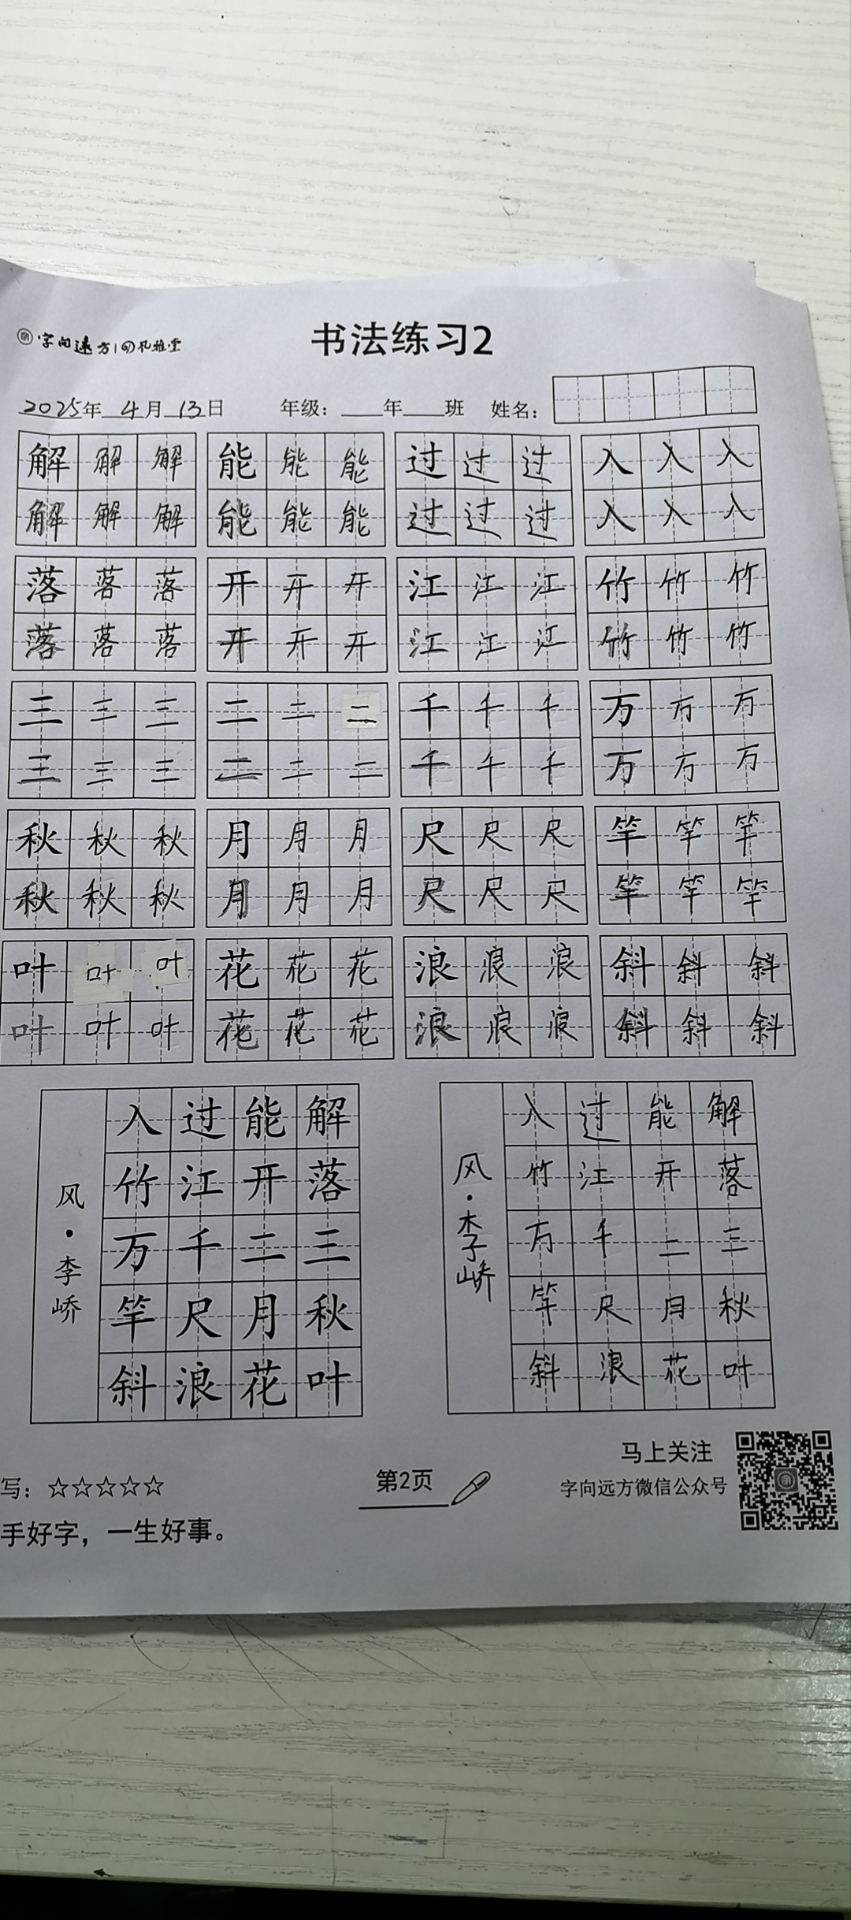 字向远方
书法练习2
2025年 4月 13日 年级：___年___班 姓名：
解 解 解 能 能 能 过 过 过 入 入 入
解 解 解 能 能 能 过 过 过 入 入 入
落 落 落 开 开 开 江 江 江 竹 竹 竹
落 落 落 开 开 开 江 江 江 竹 竹 竹
三 三 三 二 二 二 千 千 千 万 万 万
三 三 三 二 二 二 千 千 千 万 万 万
秋 秋 秋 月 月 月 尺 尺 尺 竿 竿 竿
秋 秋 秋 月 月 月 尺 尺 尺 竿 竿 竿
叶 叶 叶 花 花 花 浪 浪 浪 斜 斜 斜
叶 叶 叶 花 花 花 浪 浪 浪 斜 斜 斜
解落三秋叶
能开二月花
过江千尺浪
入竹万竿斜
风·李峤
解落三秋叶
能开二月花
过江千尺浪
入竹万竿斜
风·李峤
写：☆☆☆☆☆
手好字，一生好事。
第2页
马上关注
字向远方微信公众号